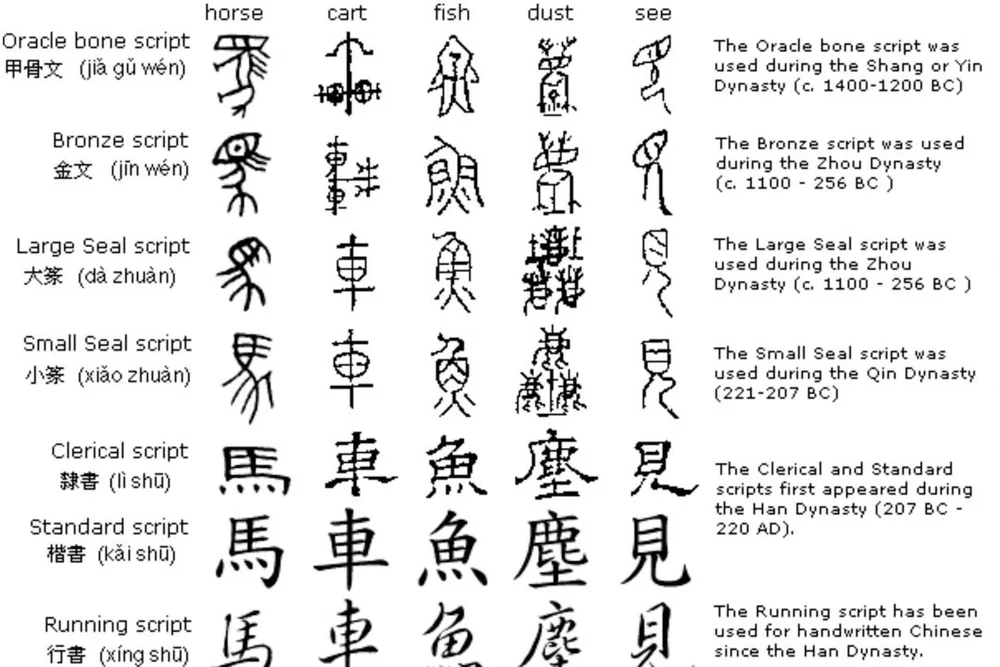 horse cart fish dust see
Oracle bone script
甲骨文 (jiǎ gǔ wén)
The Oracle bone script was
used during the Shang or Yin
Dynasty (c. 1400-1200 BC)
Bronze script
金文 (jīn wén)
The Bronze script was used
during the Zhou Dynasty
(c. 1100 - 256 BC )
Large Seal script
大篆 (dà zhuàn)
車
The Large Seal script was
used during the Zhou
Dynasty (c. 1100 - 256 BC )
Small Seal script
小篆 (xiǎo zhuàn)
車
The Small Seal script was
used during the Qin Dynasty
(221-207 BC)
Clerical script
隸書 (lì shū)
馬 車 魚 塵 見
The Clerical and Standard
scripts first appeared during
the Han Dynasty (207 BC -
220 AD).
Standard script
楷書 (kǎi shū)
馬 車 魚 塵 見
Running script
行書 (xíng shū)
馬 車 魚 塵 見
The Running script has been
used for handwritten Chinese
since the Han Dynasty.